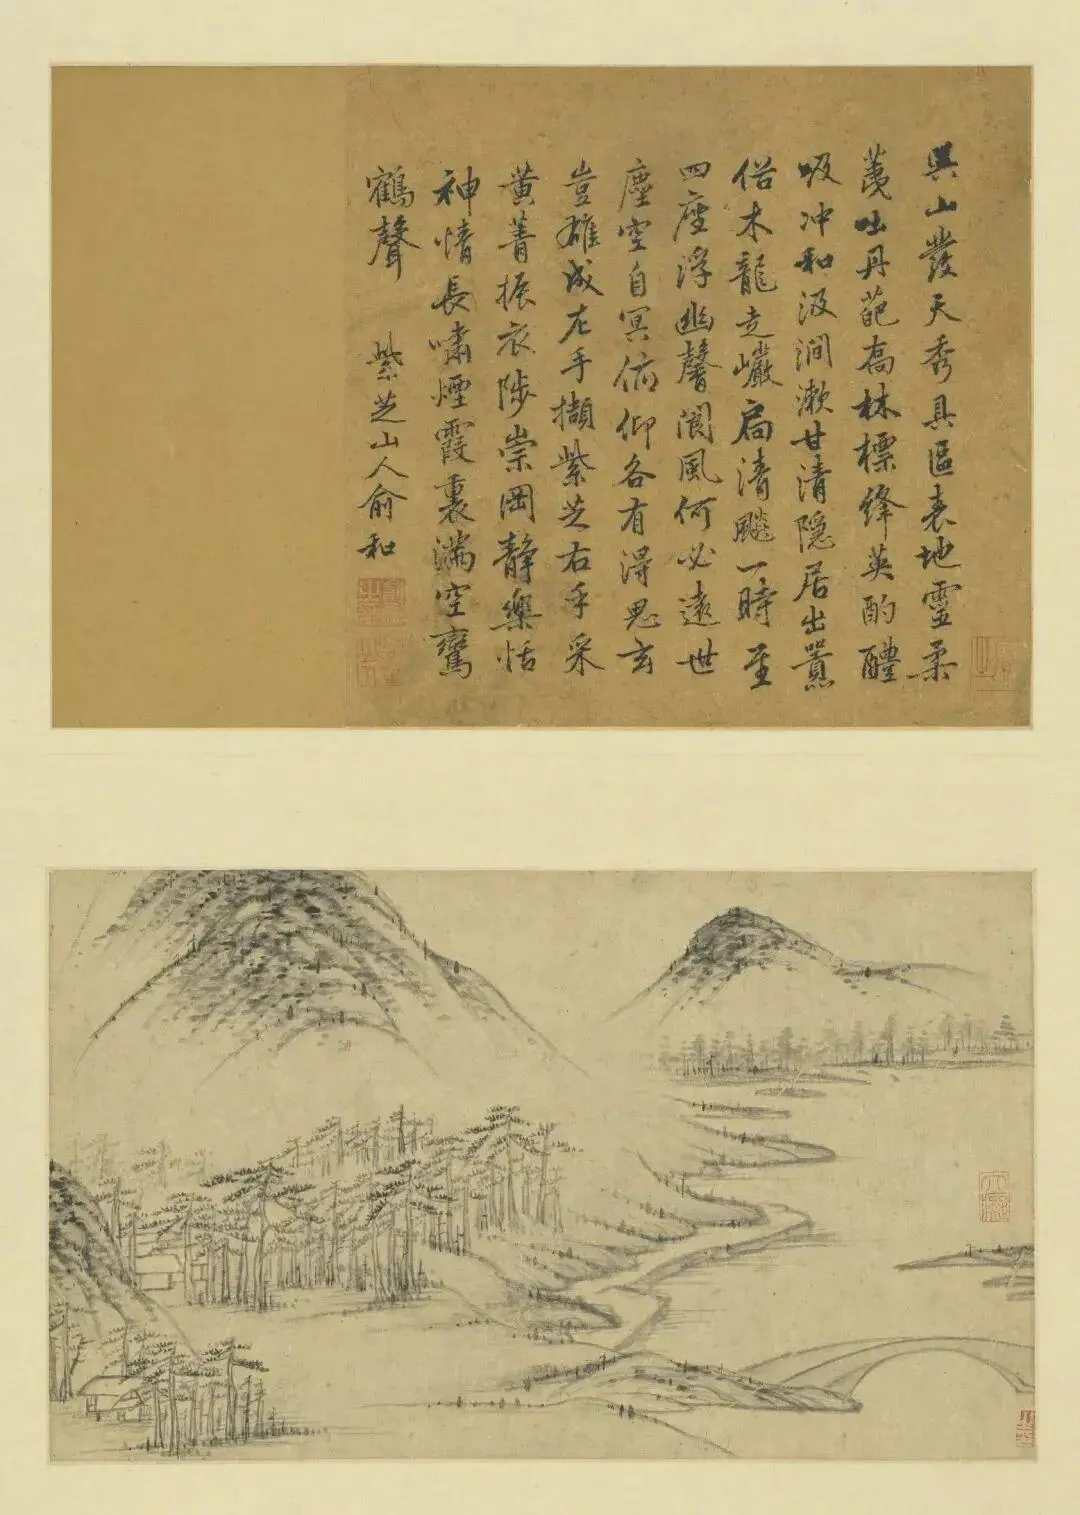 吳山發天秀具區表地靈柔
荑吐丹葩高林標絳英酌醴
吸冲和汲澗漱甘清隱居出囂
俗木龍走巖扃清飈一時至
四座浮幽馨閬風何必遠世
塵空自冥俯仰各有得思玄
豈雄成左手擷紫芝右手采
黄菁振衣陟崇岡静樂恬
神情長嘯煙霞裏滿空鸞
鶴聲
紫芝山人俞和